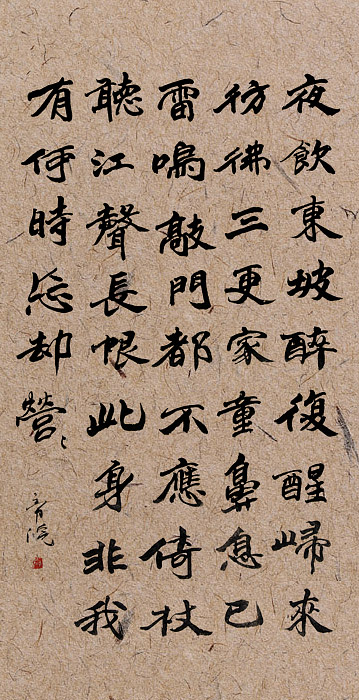 夜飲東坡醉復醒歸來
彷彿三更家童鼻息已
雷鳴敲門都不應倚杖
聽江聲長恨此身非我
有何時忘却營〻